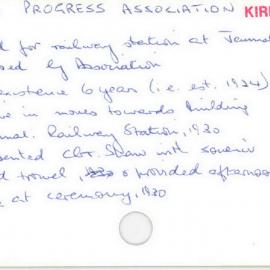 PROGRESS ASSOCIATION KIR
d for railway station at Jannal
sed by Association
existence 6 year (i.e. est. 1924)
ve in moves towards building
nnal. Railway Station, 1930
sented Cllr. Shaw with souvenir
d trowel, & provided afternoon
at ceremony, 1930